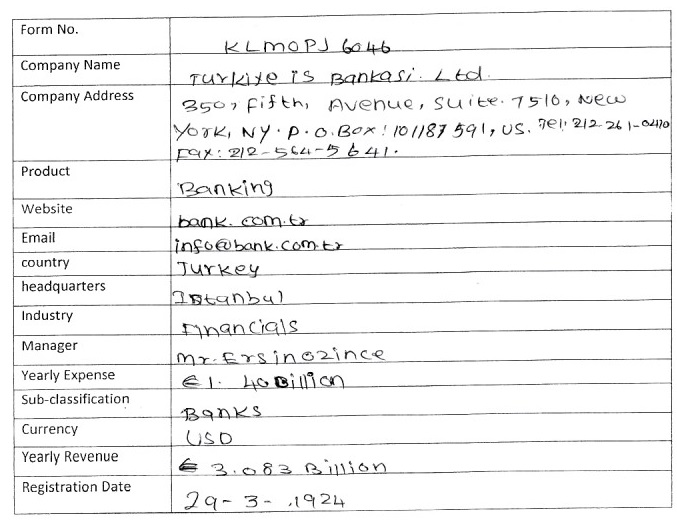 Form No. KLMOPJ 6046
Company Name Turkiye is Bankasi. Ltd.
Company Address 350, Fifth, Avenue, Suite. 7510, New
York, NY. P.O.Box: 101187591, US. Tel: 212-261-0470
Fax: 212-564-5641.
Product Banking
Website bank.com.tr
Email info@bank.com.tr
country Turkey
headquarters Istanbul
Industry Financials
Manager Mr. Ersinozince
Yearly Expense €1. 40 Billion
Sub-classification Banks
Currency USD
Yearly Revenue € 3.083 Billion
Registration Date 29-3-.1924